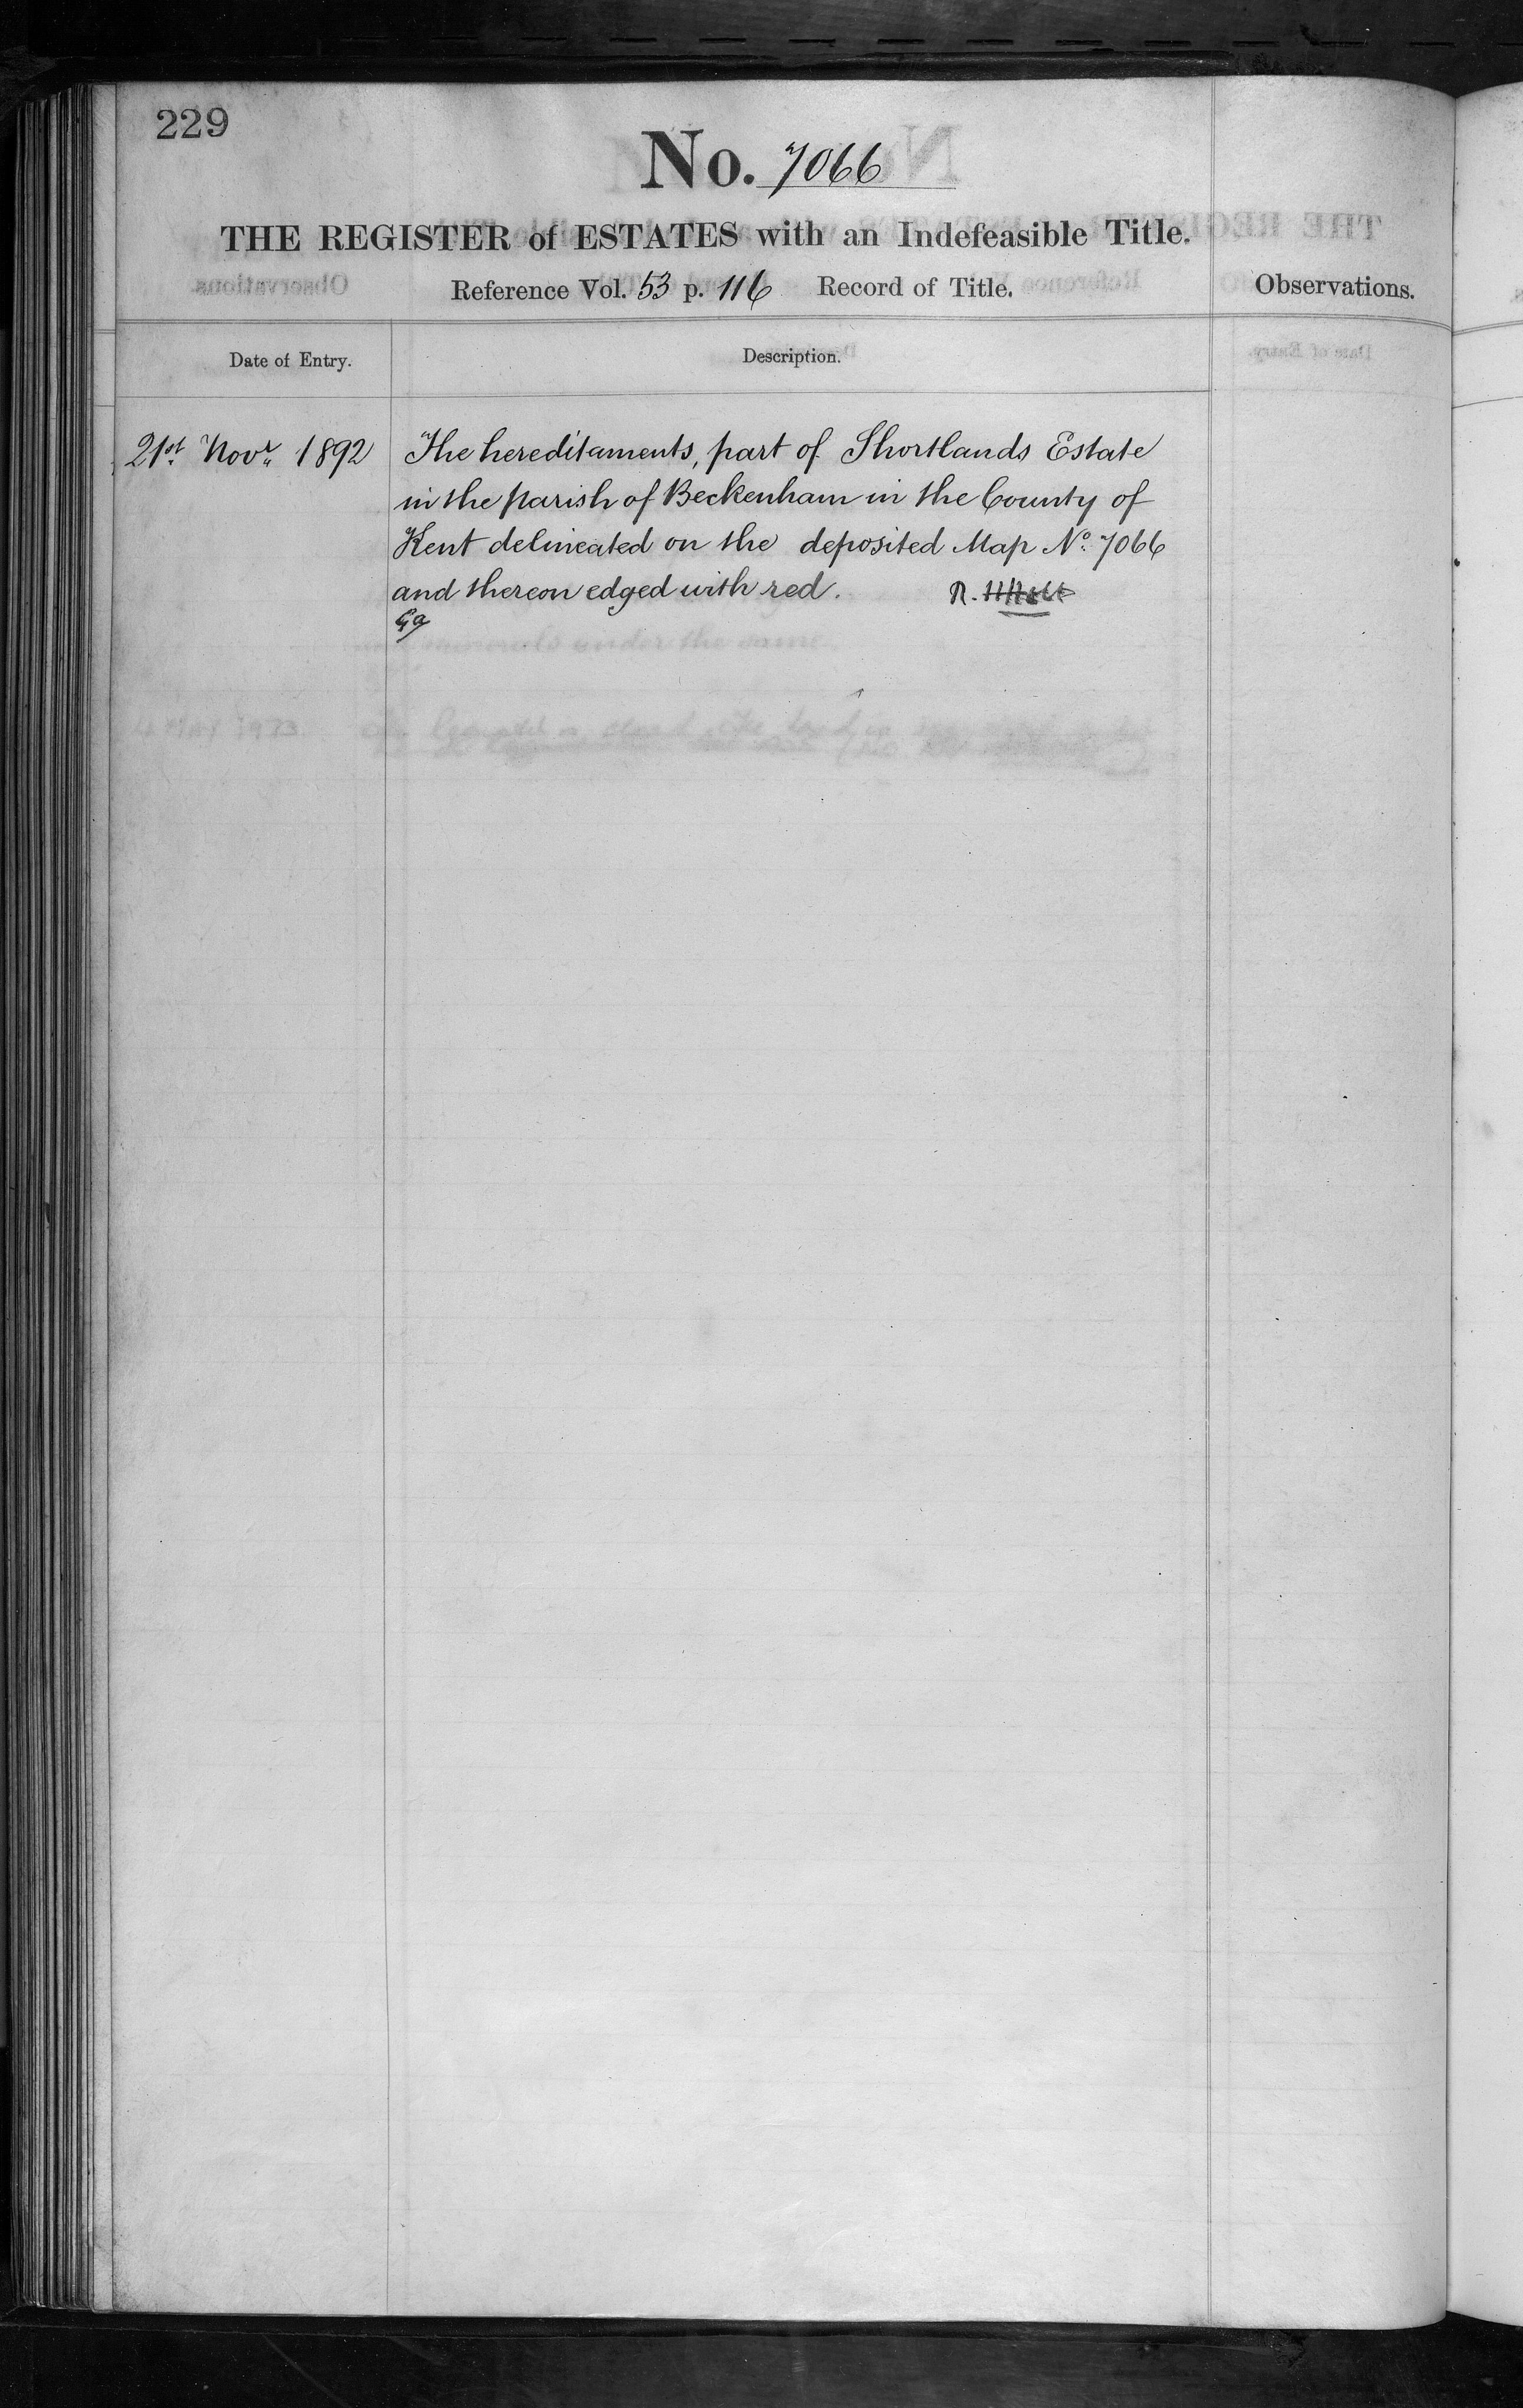 229
No. 7066
THE REGISTER of ESTATES with an Indefeasible Title.
Reference Vol. 53 p. 116 Record of Title.
Observations.
Date of Entry.
Description.
21st Novr 1892
The hereditaments, part of Shortlands Estate
in the parish of Beckenham in the County of
Kent delineated on the deposited Map No. 7066
and thereon edged with red.
R.